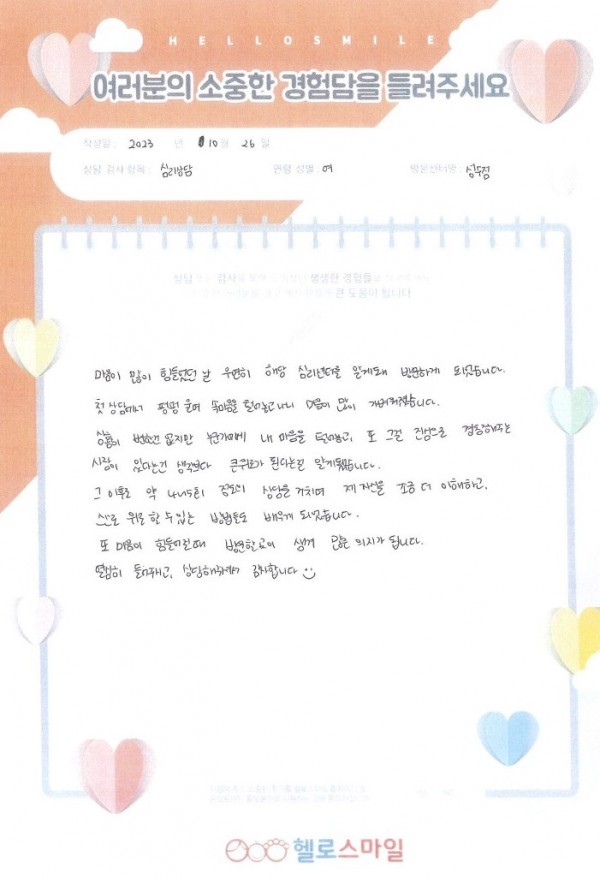 HELLOSMILE
여러분의 소중한 경험담을 들려주세요
작성일 : 2023 년 10월 26 일
상담 검사 항목 : 심리상담 연령 성별 : 여 방문센터명 : 성수점
상담 검사 생생한 경험들
큰 도움이 됩니다
마음이 많이 힘들었던 날 우연히 해당 심리센터를 알게돼 방문하게 되었습니다.
첫 상담에서 펑펑 울며 속마음을 털어놓고나니 마음이 많이 가벼워졌습니다.
상황이 변한건 없지만 누군가에게 내 마음을 털어놓고, 또 그걸 진심으로 경청해주는
사람이 있다는건 생각보다 큰 위로가 된다는걸 알게됐습니다.
그 이후로 약 4나5회 정도의 상담을 거치며 제 자신을 조금 더 이해하고,
스스로 위로 할 수 있는 방법들도 배우게 되었습니다.
또 마음이 힘들어질때 방문할곳이 생겨 많은 의지가 됩니다.
열심히 들어주시고, 상담해주셔서 감사합니다
헬로스마일